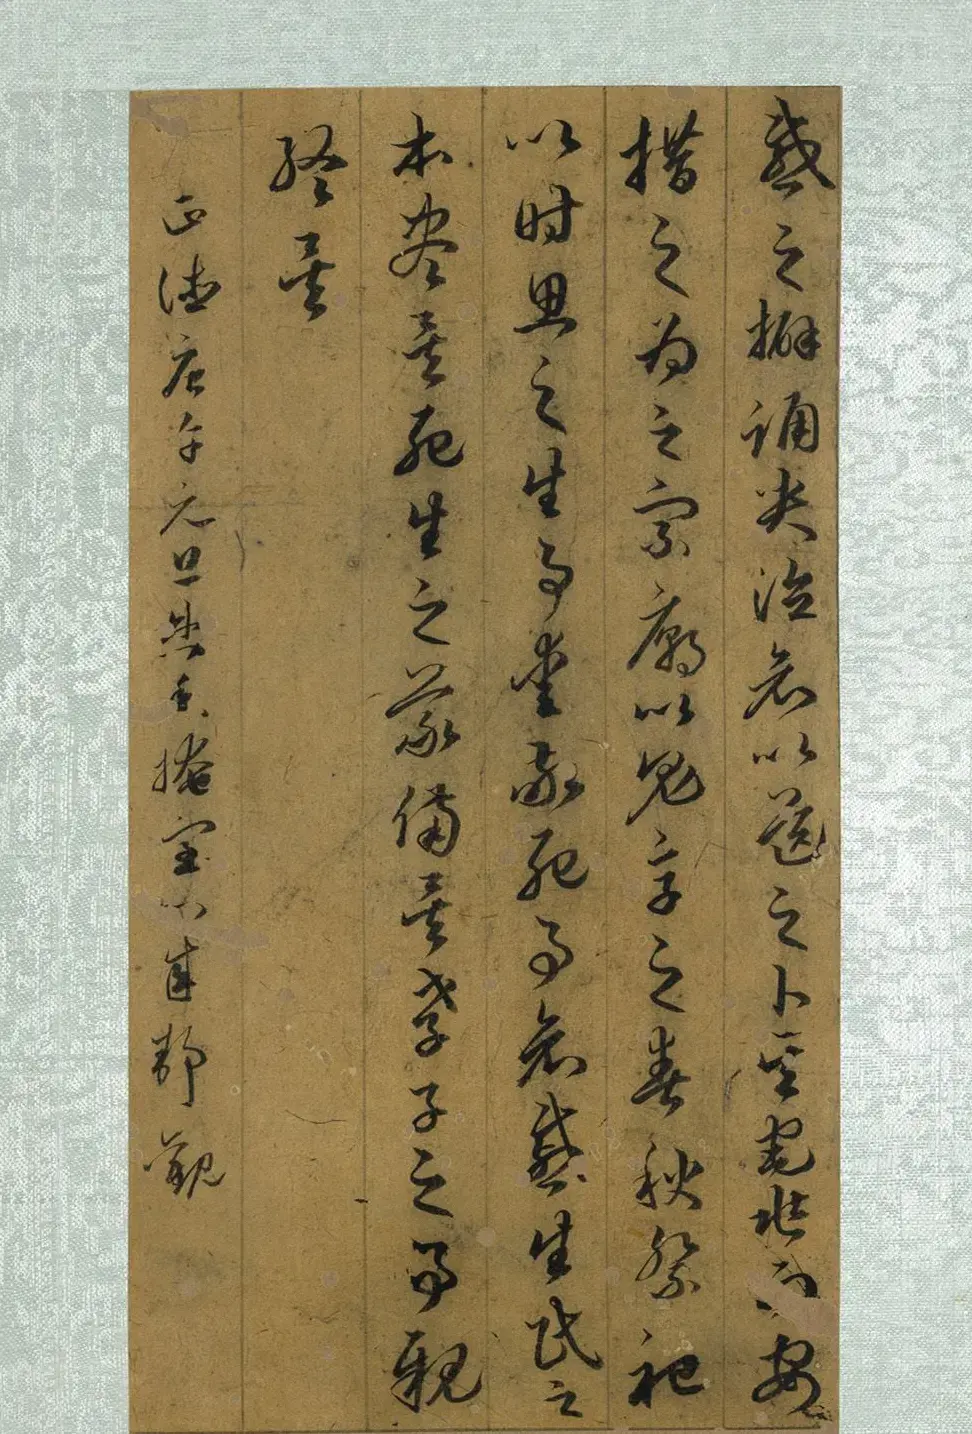 慼之擗踊哭泣哀以送之卜其宅兆而安
措之為之宗廟以鬼享之春秋祭祀
以時思之生事愛敬死事哀慼生民之
本盡矣死生之義備矣孝子之事親
終矣
正德庚午元旦焚香掩室靜觀